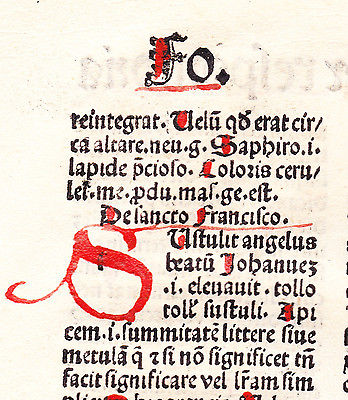 Fo.
reintegrat. Uelū qḋ erat cir/
cā altare. neu. g. Saphiro. i.
lapide p̄cioso. Coloris ceru/
lei. me. ꝓdu. mas. ge. est.
De sancto Francisco.
SUstulit angelus
beatū Johannez
.i. eleuauit. tollo
tolľ sustuli. Api
cem .i. summitatē littere siue
metulā q̄ ⁊ si nō significet tñ
facit significare vel lr̄am sim